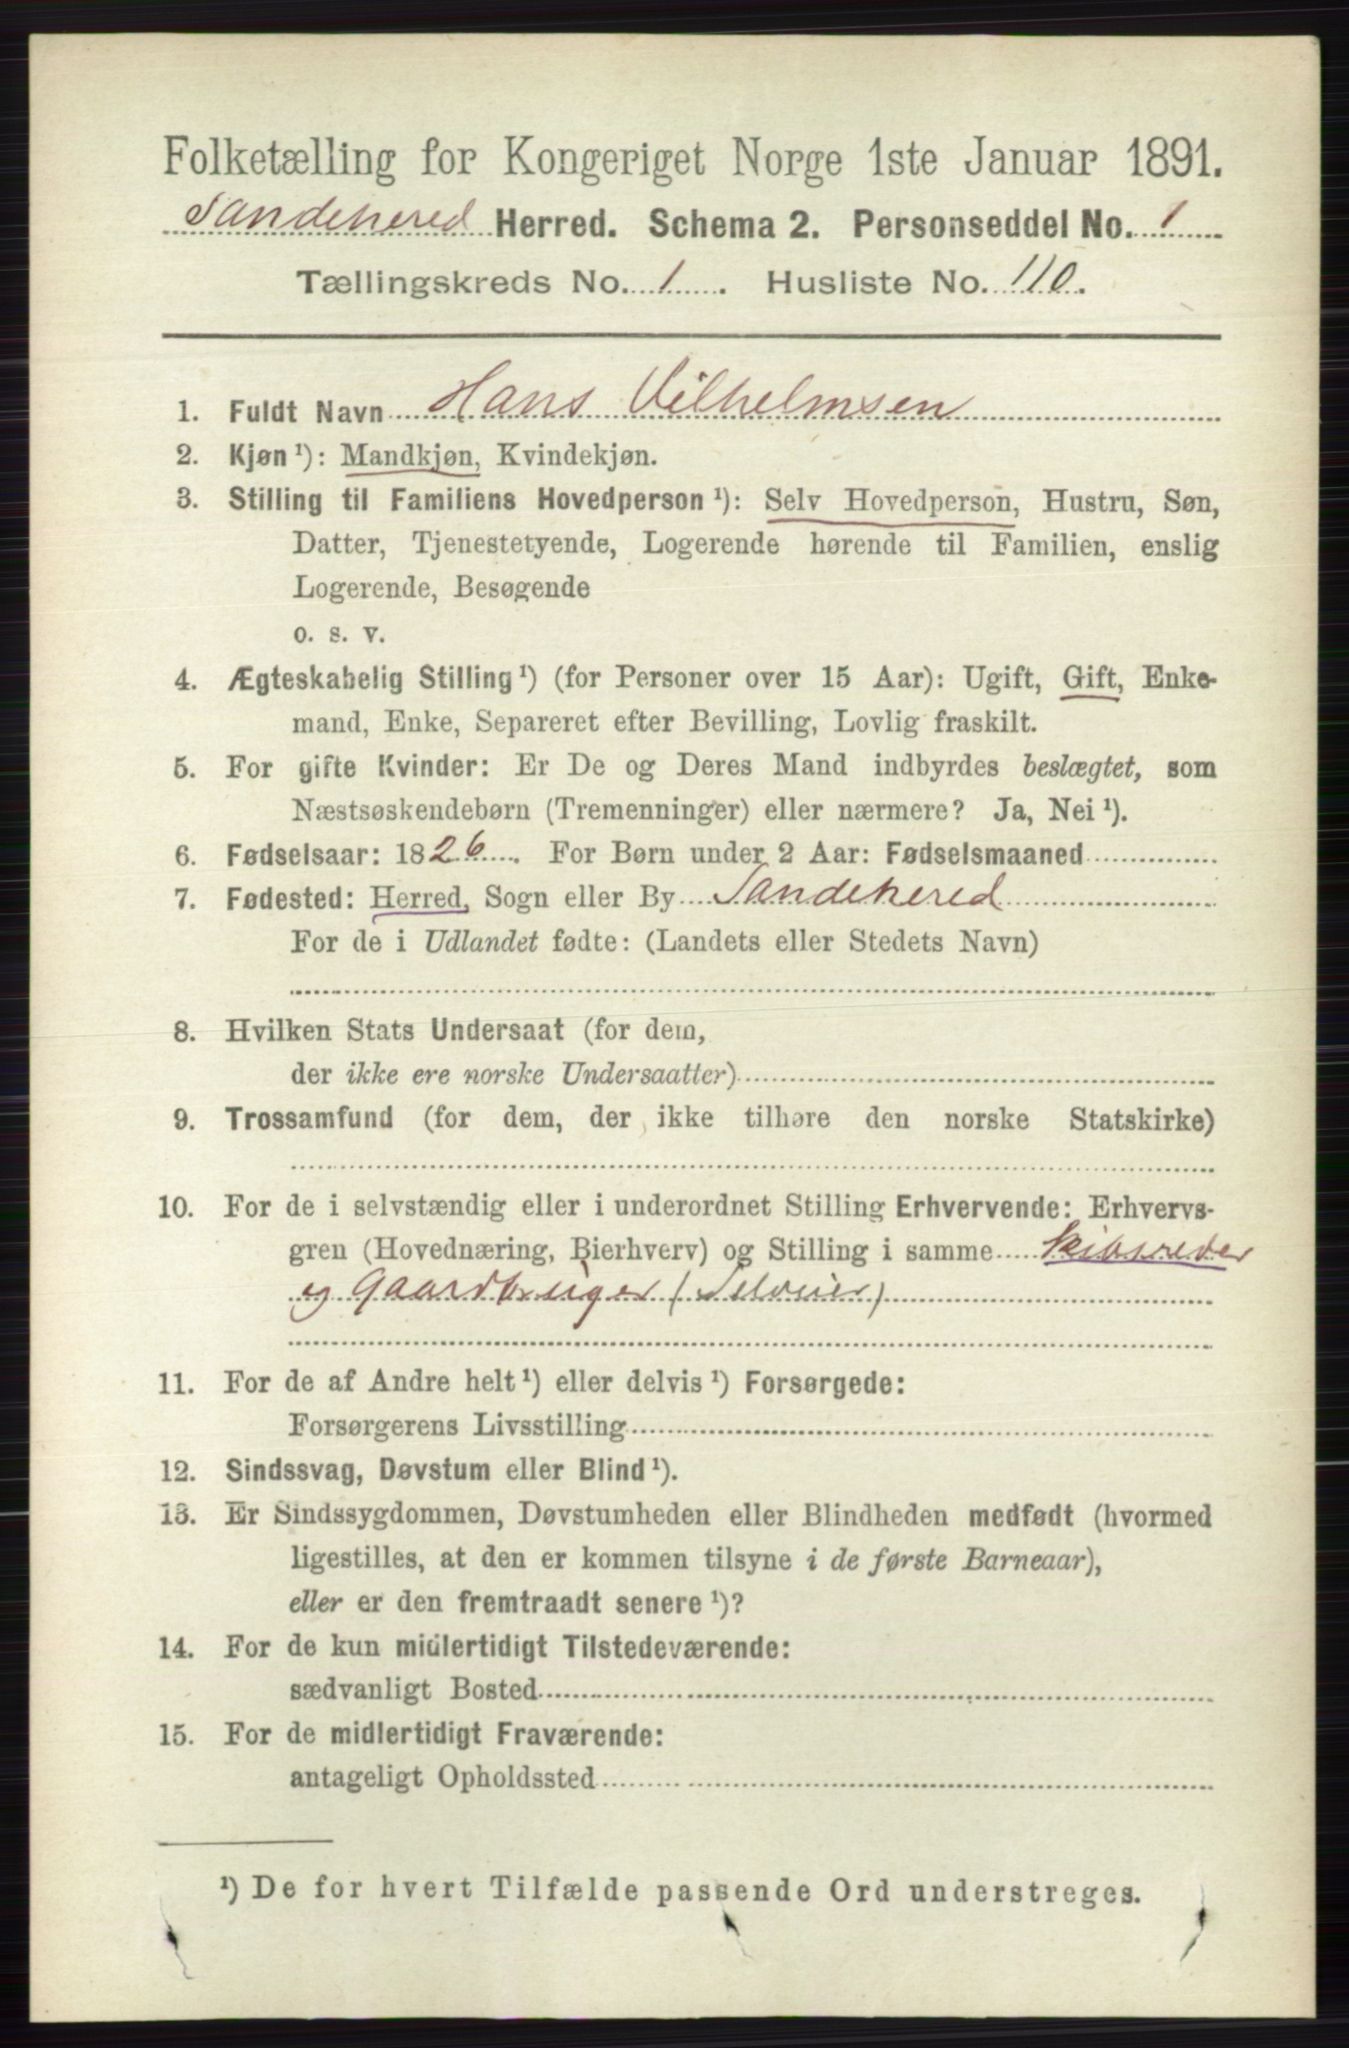 Folketælling for Kongeriget Norge 1ste Januar 1891.
Sandehered Herred. Schema 2. Personseddel No. 1
Tællingskreds No. 1. Husliste No. 110.
1. Fuldt Navn Hans Vilhelmsen
2. Kjøn ¹): Mandkjøn, Kvindekjøn.
3. Stilling til Familiens Hovedperson ¹): Selv Hovedperson, Hustru, Søn,
Datter, Tjenestetyende, Logerende hørende til Familien, enslig
Logerende, Besøgende
o. s. v.
4. Ægteskabelig Stilling ¹) (for Personer over 15 Aar): Ugift, Gift, Enke-
mand, Enke, Separeret efter Bevilling, Lovlig fraskilt.
5. For gifte Kvinder: Er De og Deres Mand indbyrdes beslægtet, som
Næstsøskendebørn (Tremenninger) eller nærmere? Ja, Nei ¹).
6. Fødselsaar: 1826. For Børn under 2 Aar: Fødselsmaaned
7. Fødested: Herred, Sogn eller By Sandehered
For de i Udlandet fødte: (Landets eller Stedets Navn)
8. Hvilken Stats Undersaat (for dem,
der ikke ere norske Undersaatter)
9. Trossamfund (for dem, der ikke tilhøre den norske Statskirke)
10. For de i selvstændig eller i underordnet Stilling Erhvervende: Erhvervs-
gren (Hovednæring, Bierhverv) og Stilling i samme Skibsreder
og Gaardbruger (Selveier)
11. For de af Andre helt ¹) eller delvis ¹) Forsørgede:
Forsørgerens Livsstilling
12. Sindssvag, Døvstum eller Blind ¹).
13. Er Sindssygdommen, Døvstumheden eller Blindheden medfødt (hvormed
ligestilles, at den er kommen tilsyne i de første Barneaar),
eller er den fremtraadt senere ¹)?
14. For de kun midlertidigt Tilstedeværende:
sædvanligt Bosted
15. For de midlertidigt Fraværende:
antageligt Opholdssted
¹) De for hvert Tilfælde passende Ord understreges.